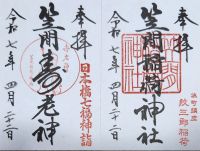 奉拝
笠間稲荷神社
令和七年四月二十二日
浜町鎮座
紋三郎稲荷
奉拝
笠間寿老神
日本橋七福神詣
令和七年四月二十二日